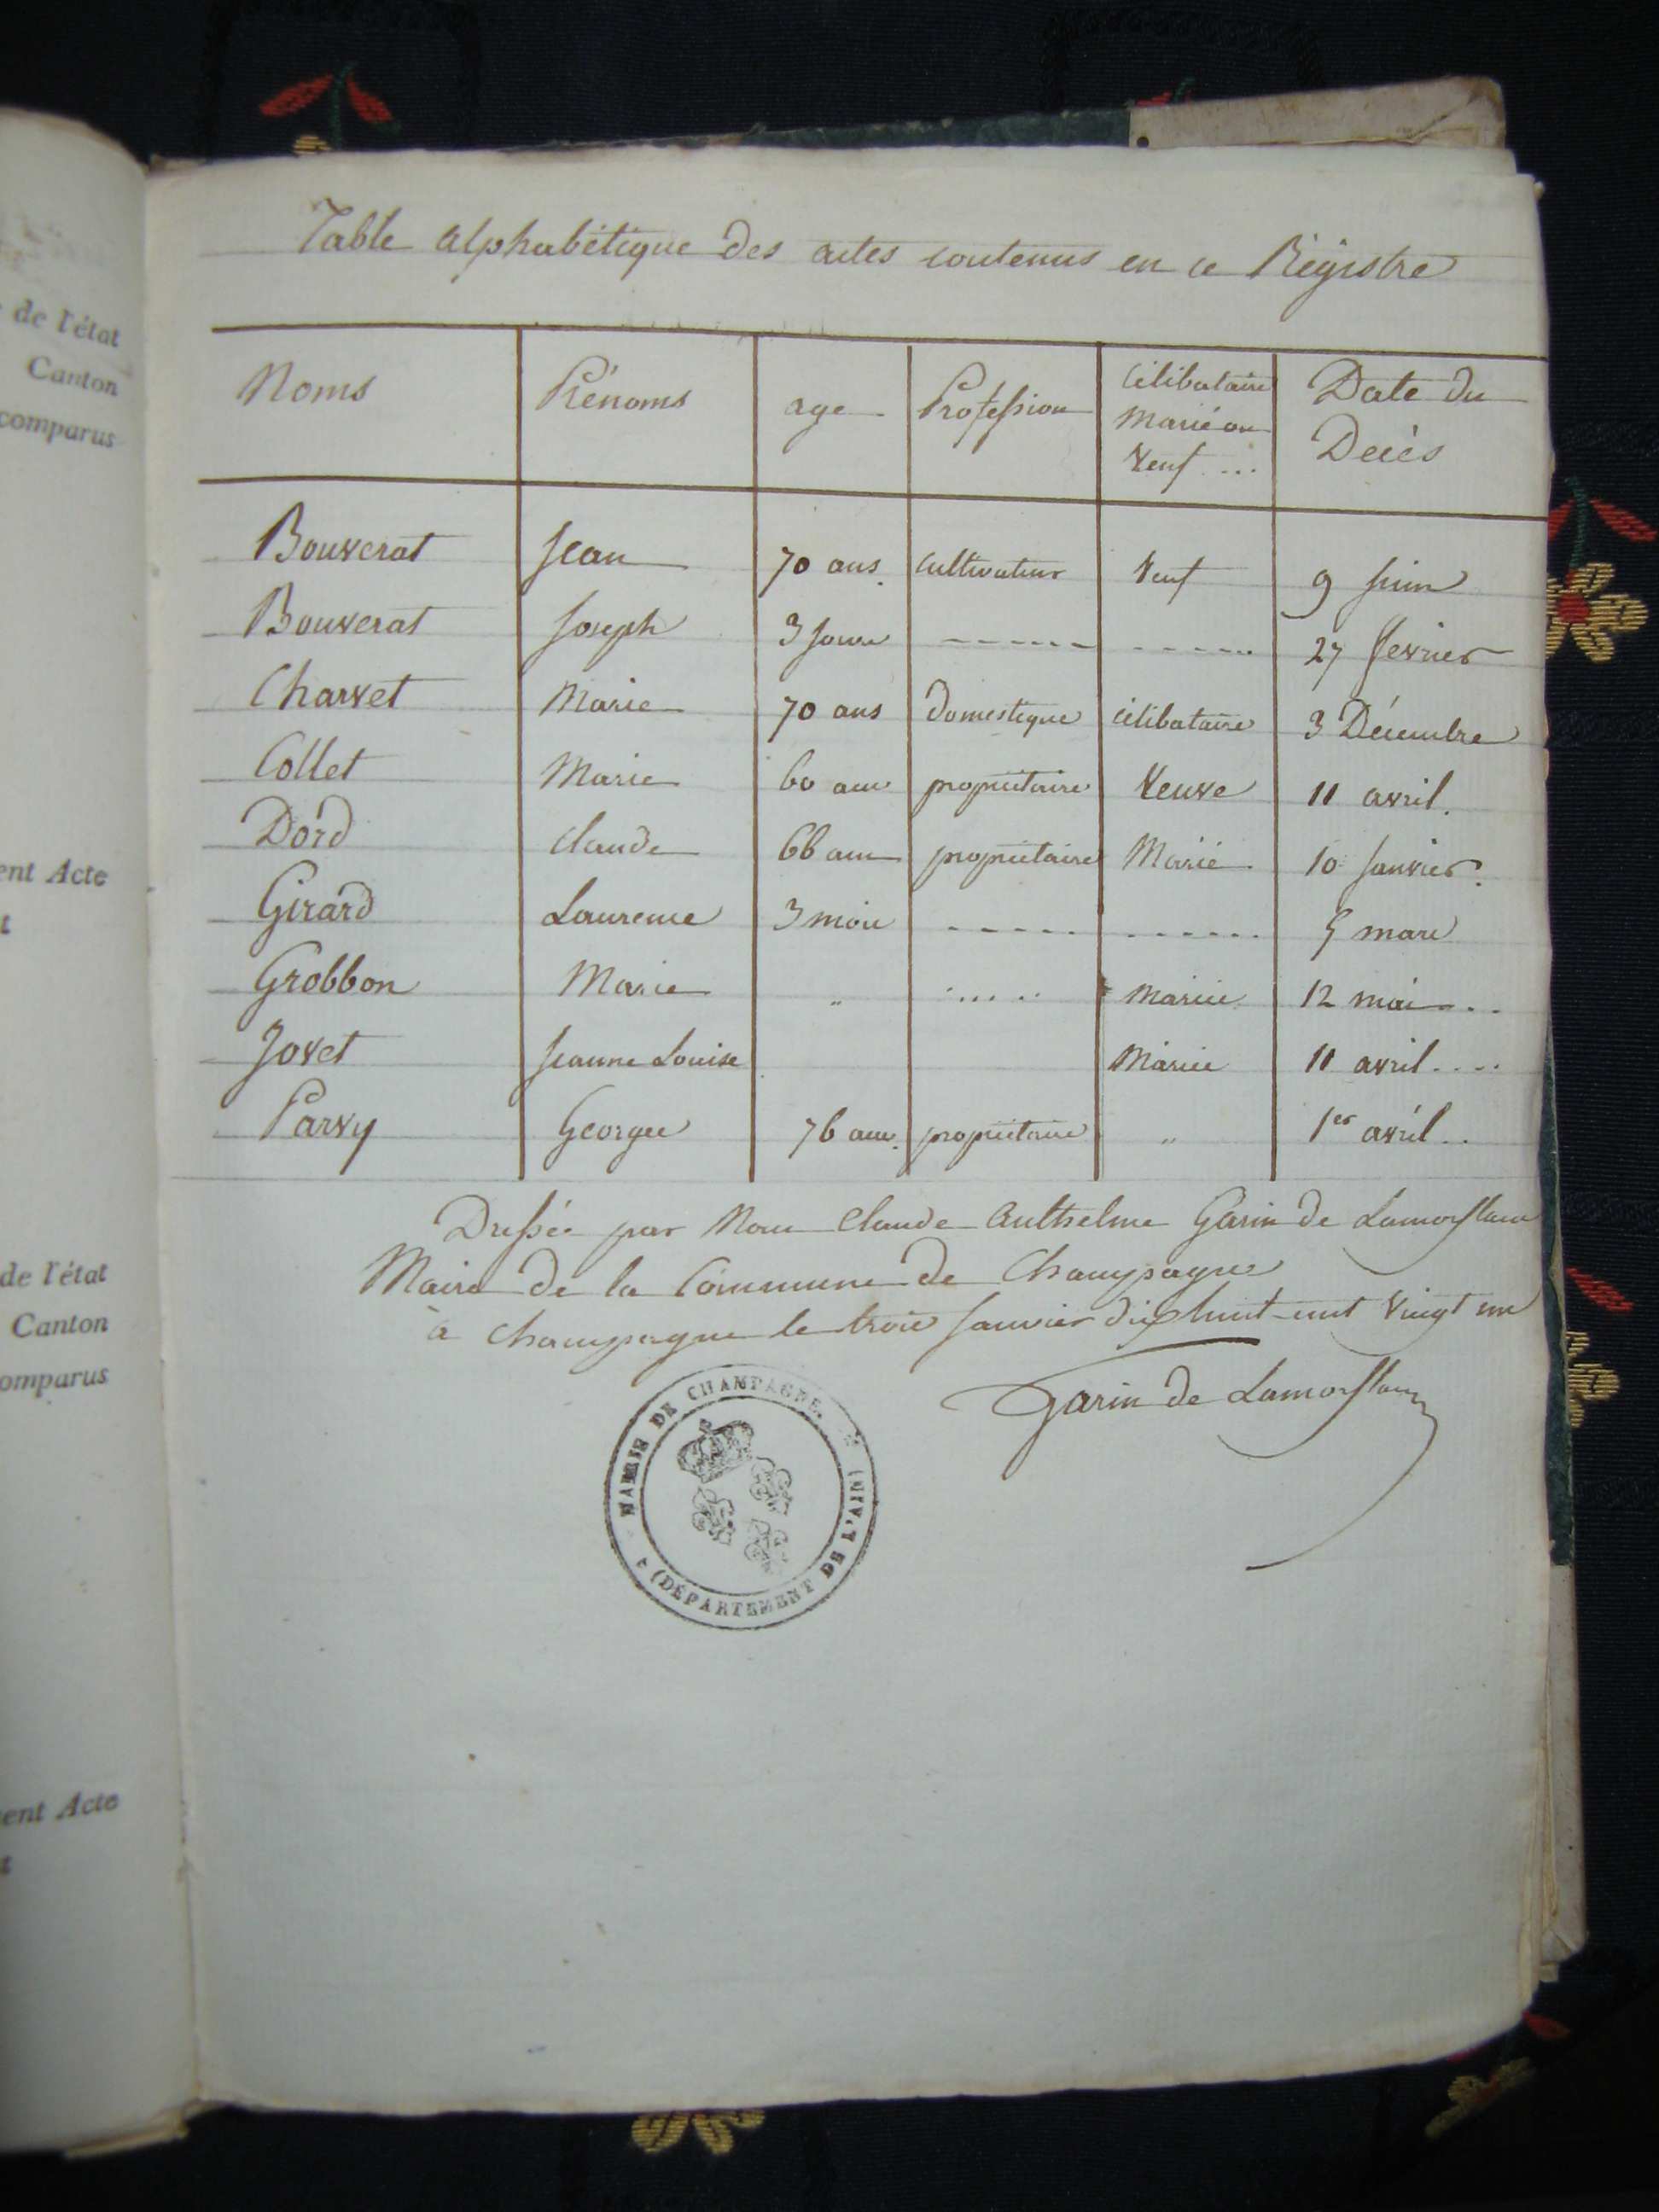 de l'état
Canton
comparus
ent Acte
de l'état
Canton
omparus
ent Acte
Table alphabétique des actes contenus en ce Régistre
Noms Prénoms age Profession Célibataire Marié ou Veuf ... Date du Décès
Bouverat Jean 70 ans cultivateur Veuf 9 juin
Bouverat Joseph 3 jours ------ ------ 27 fevrier
Charvet Marie 70 ans domestique célibataire 3 Décembre
Collet Marie 60 ans propriétaire Veuve 11 avril.
Dord Claude 66 ans propriétaire Marié 10 Janvier.
Girard Laurence 3 mois ----- ------ 5 mars
Grobbon Marie " ..... mariée 12 mai ...
Jovet Jeanne Louise Mariée 11 avril ....
Parvy George 76 ans propriétaire " 1er avril ..
Dressée par Nous Claude Anthelme Garin de Lamorflans
Maire de la Commune de Champagne
à Champagne le trois Janvier dix huit-cent vingt un
Garin de Lamorflans
MAIRIE DE CHAMPAGNE.
(DÉPARTEMENT DE L'AIN)